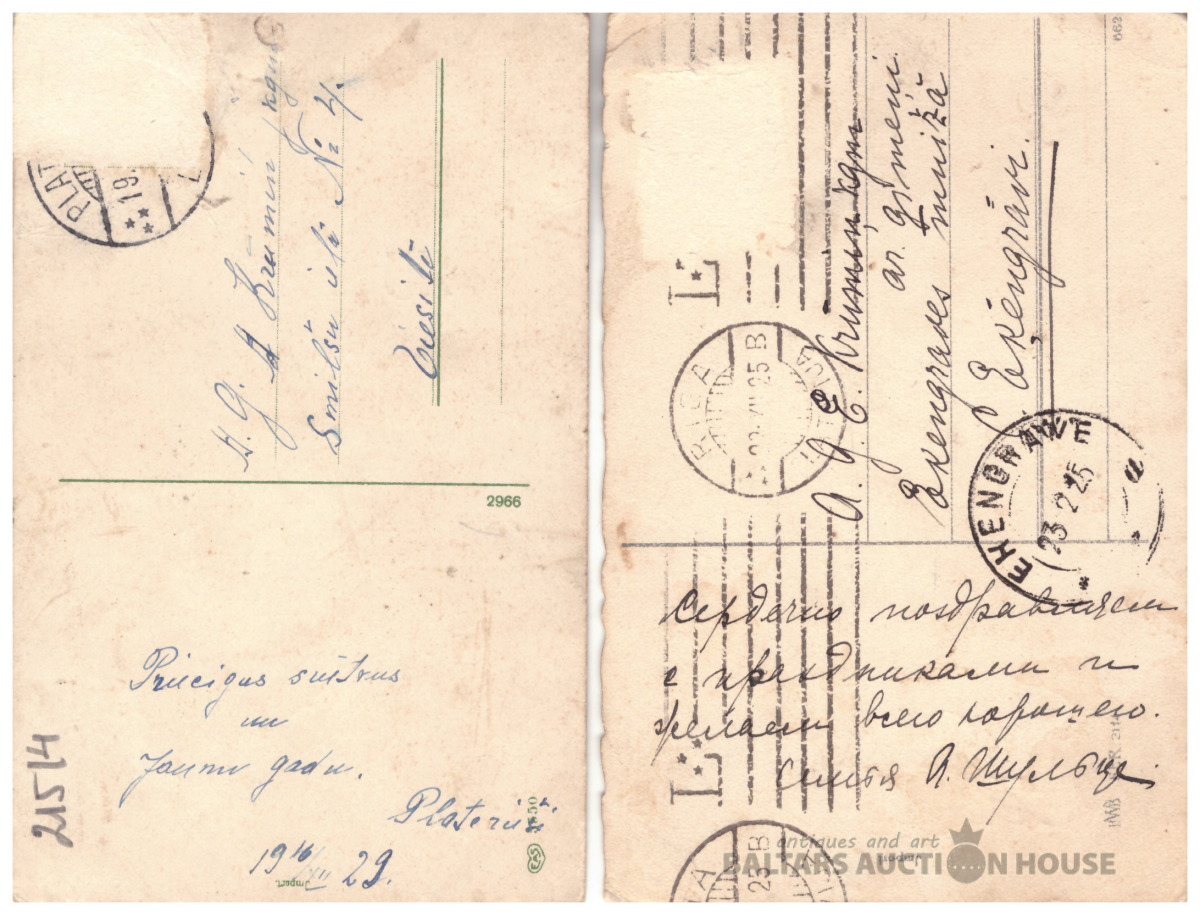 PLAT
19
L
A. G. A Krūmiņ kgm
Smilšu ielā № 4.
Viesītē
2966
Priecīgus svētkus
un
Jaunu gadu.
Plateriši
19 16/XII 29.
Import.
EAS
2154
663
L
RIGA
LATVIJA
22.XII 25 B
A. g. E. Krumiņ kgm
ar. ģimeni.
Ekengraves muižā
Ekengrāvi.
EKENGRAWE
23 12 25
a
Сердечно поздравляем
с праздниками и
желаем всего хорошего.
Семья А. Шульце
L
25 B
IWB
Import
antiques and art
BALTARS AUCTION HOUSE